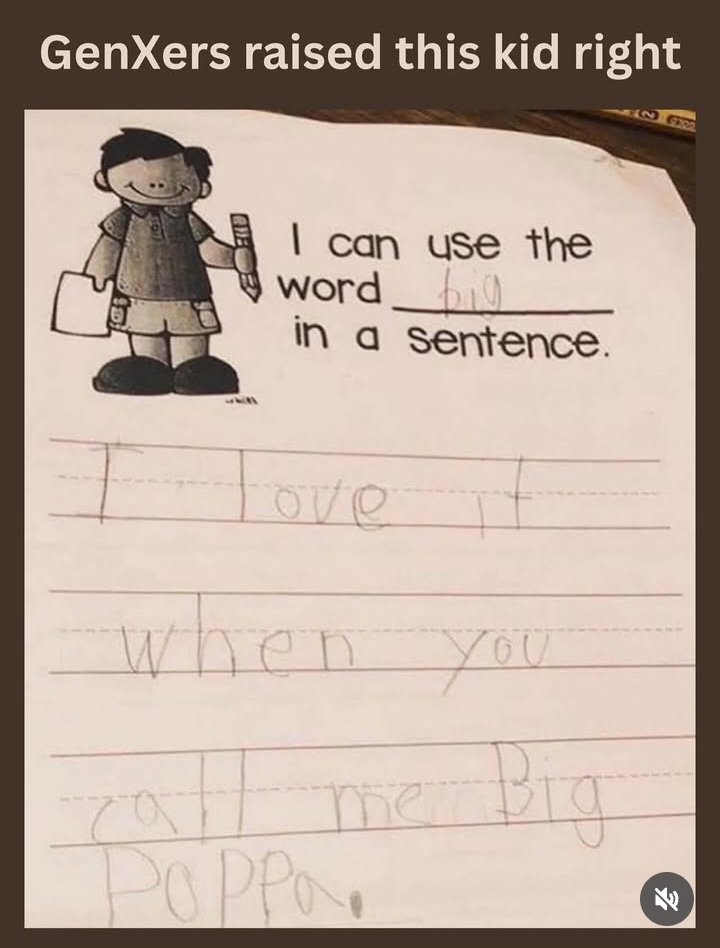 GenXers raised this kid right
I can use the
word big
in a sentence.
I love it
when you
call me Big
Poppa.